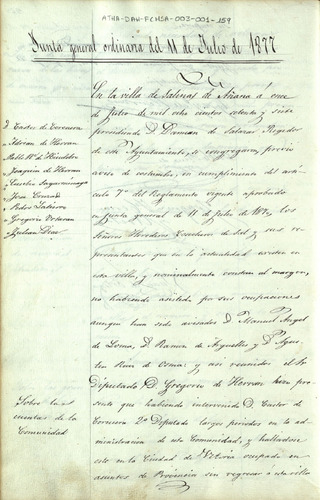 ATHA-DAH-FCMSA-003-001-159
Junta general ordinaria del 11 de Julio de 1877
En la villa de Salinas de Añana á once
de Julio de mil ocho cientos setenta y siete
presidiendo D. Damian de Salazar Regidor
de este Ayuntamiento, se congregaron, previo
aviso de costumbre, en cumplimiento del artí
culo 7º del Reglamento vigente aprobado
en Junta general de 11 de Julio de los
Señores Herederos Cosecheros de Sal y sus re
presentantes que en la actualidad existen en
esta villa, y nominalmente constan al margen,
no habiendo asistido por sus ocupaciones
aunque han sido avisados D. Manuel Angel
de Loma, D. Ramon de Arguelles y D. Agus
tin Ruiz de Osma: y asi reunidos el Sr
Diputado D. Gregorio de Herran hizo pre
sente que habiendo intervenido D. Castor de
Corcuera 2º Diputado largos periodos en la ad
ministracion de esta Comunidad, y hallandose
este en la Ciudad de Vitoria ocupado en
asuntos de Provincia sin regresar á esta villa
D. Castor de Corcuera
Adrian de Herran
Pablo
Joaquin de Herran
Eusebio Sagarminaga
Jose
Pedro
Gregorio
Julian Diaz
Sobre las
cuentas de la
Comunidad